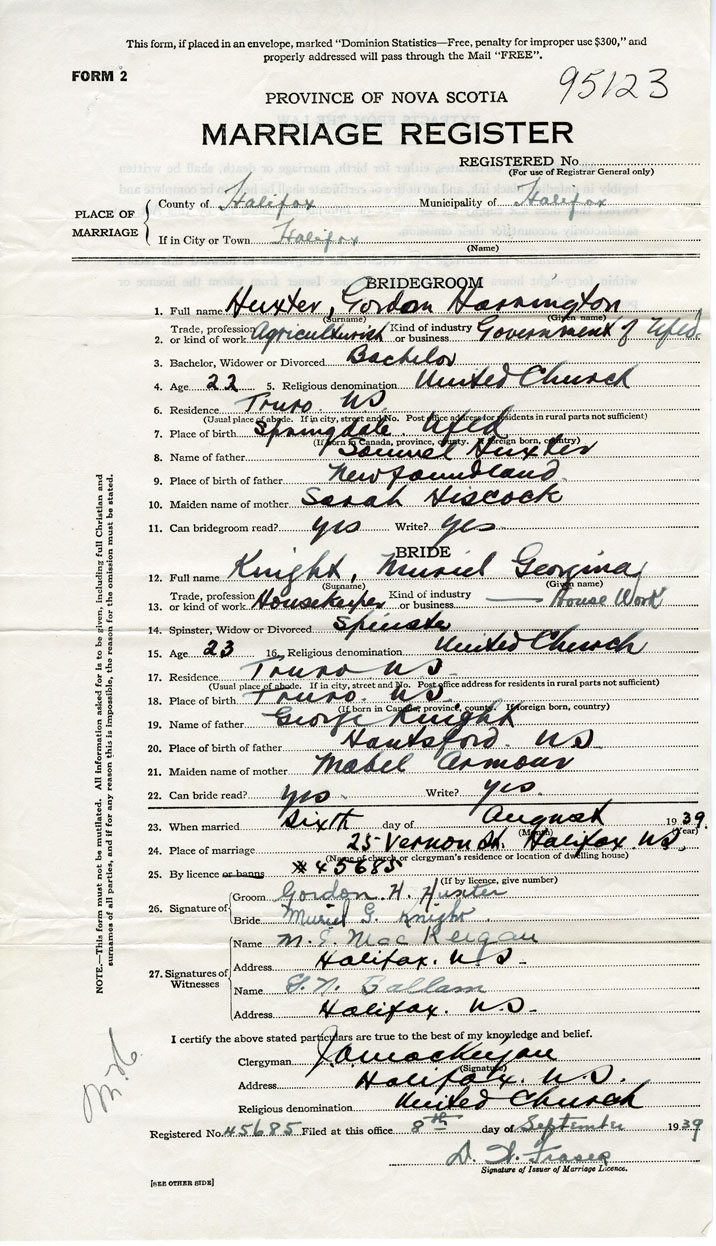 This form, if placed in an envelope, marked "Dominion Statistics—Free, penalty for improper use $300," and
properly addressed will pass through the Mail "FREE".
FORM 2
95123
PROVINCE OF NOVA SCOTIA
MARRIAGE REGISTER
REGISTERED No.
(For use of Registrar General only)
PLACE OF MARRIAGE
County of Halifax Municipality of Halifax
If in City or Town Halifax
(Name)
BRIDEGROOM
1. Full name Huxter, Gordon Harrington
(Surname) (Given name)
2. Trade, profession or kind of work Agriculturist Kind of industry or business Government of Nfld.
3. Bachelor, Widower or Divorced Bachelor
4. Age 22 5. Religious denomination United Church
6. Residence Truro NS
(Usual place of abode. If in city, street and No. Post office address for residents in rural parts not sufficient)
7. Place of birth Springdale Nfld
(If born in Canada, province, county. If foreign born, country)
8. Name of father Samuel Huxter
9. Place of birth of father Newfoundland
10. Maiden name of mother Sarah Hiscock
11. Can bridegroom read? yes Write? yes
BRIDE
12. Full name Knight, Muriel Georgina
(Surname) (Given name)
13. Trade, profession or kind of work Housekeeper Kind of industry or business — House Work
14. Spinster, Widow or Divorced Spinster
15. Age 23 16. Religious denomination United Church
17. Residence Truro NS
(Usual place of abode. If in city, street and No. Post office address for residents in rural parts not sufficient)
18. Place of birth Truro NS.
(If born in Canada, province, county. If foreign born, country)
19. Name of father George Knight
20. Place of birth of father Hantsford NS
21. Maiden name of mother Mabel Armour
22. Can bride read? yes Write? yes.
23. When married Sixth day of August 1939.
(Month) (Year)
24. Place of marriage 25 Vernon St. Halifax NS,
(Name of church or clergyman's residence or location of dwelling house)
25. By licence or banns #45685
(If by licence, give number)
26. Signature of
Groom Gordon H. Huxter
Bride Muriel G. Knight.
27. Signatures of Witnesses
Name M. E. MacKeigan
Address Halifax. N.S.
Name Ballam
Address Halifax. N.S.
I certify the above stated particulars are true to the best of my knowledge and belief.
Clergyman J.A. MacKeigan
(Signature)
Address Halifax. N.S.
Religious denomination United Church
Registered No. 45685 Filed at this office 8th day of September 1939
D. W. Fraser
Signature of Issuer of Marriage Licence.
[SEE OTHER SIDE]
NOTE.—This form must not be mutilated. All information asked for is to be given, including full Christian and
surnames of all parties, and if for any reason this is impossible, the reason for the omission must be stated.